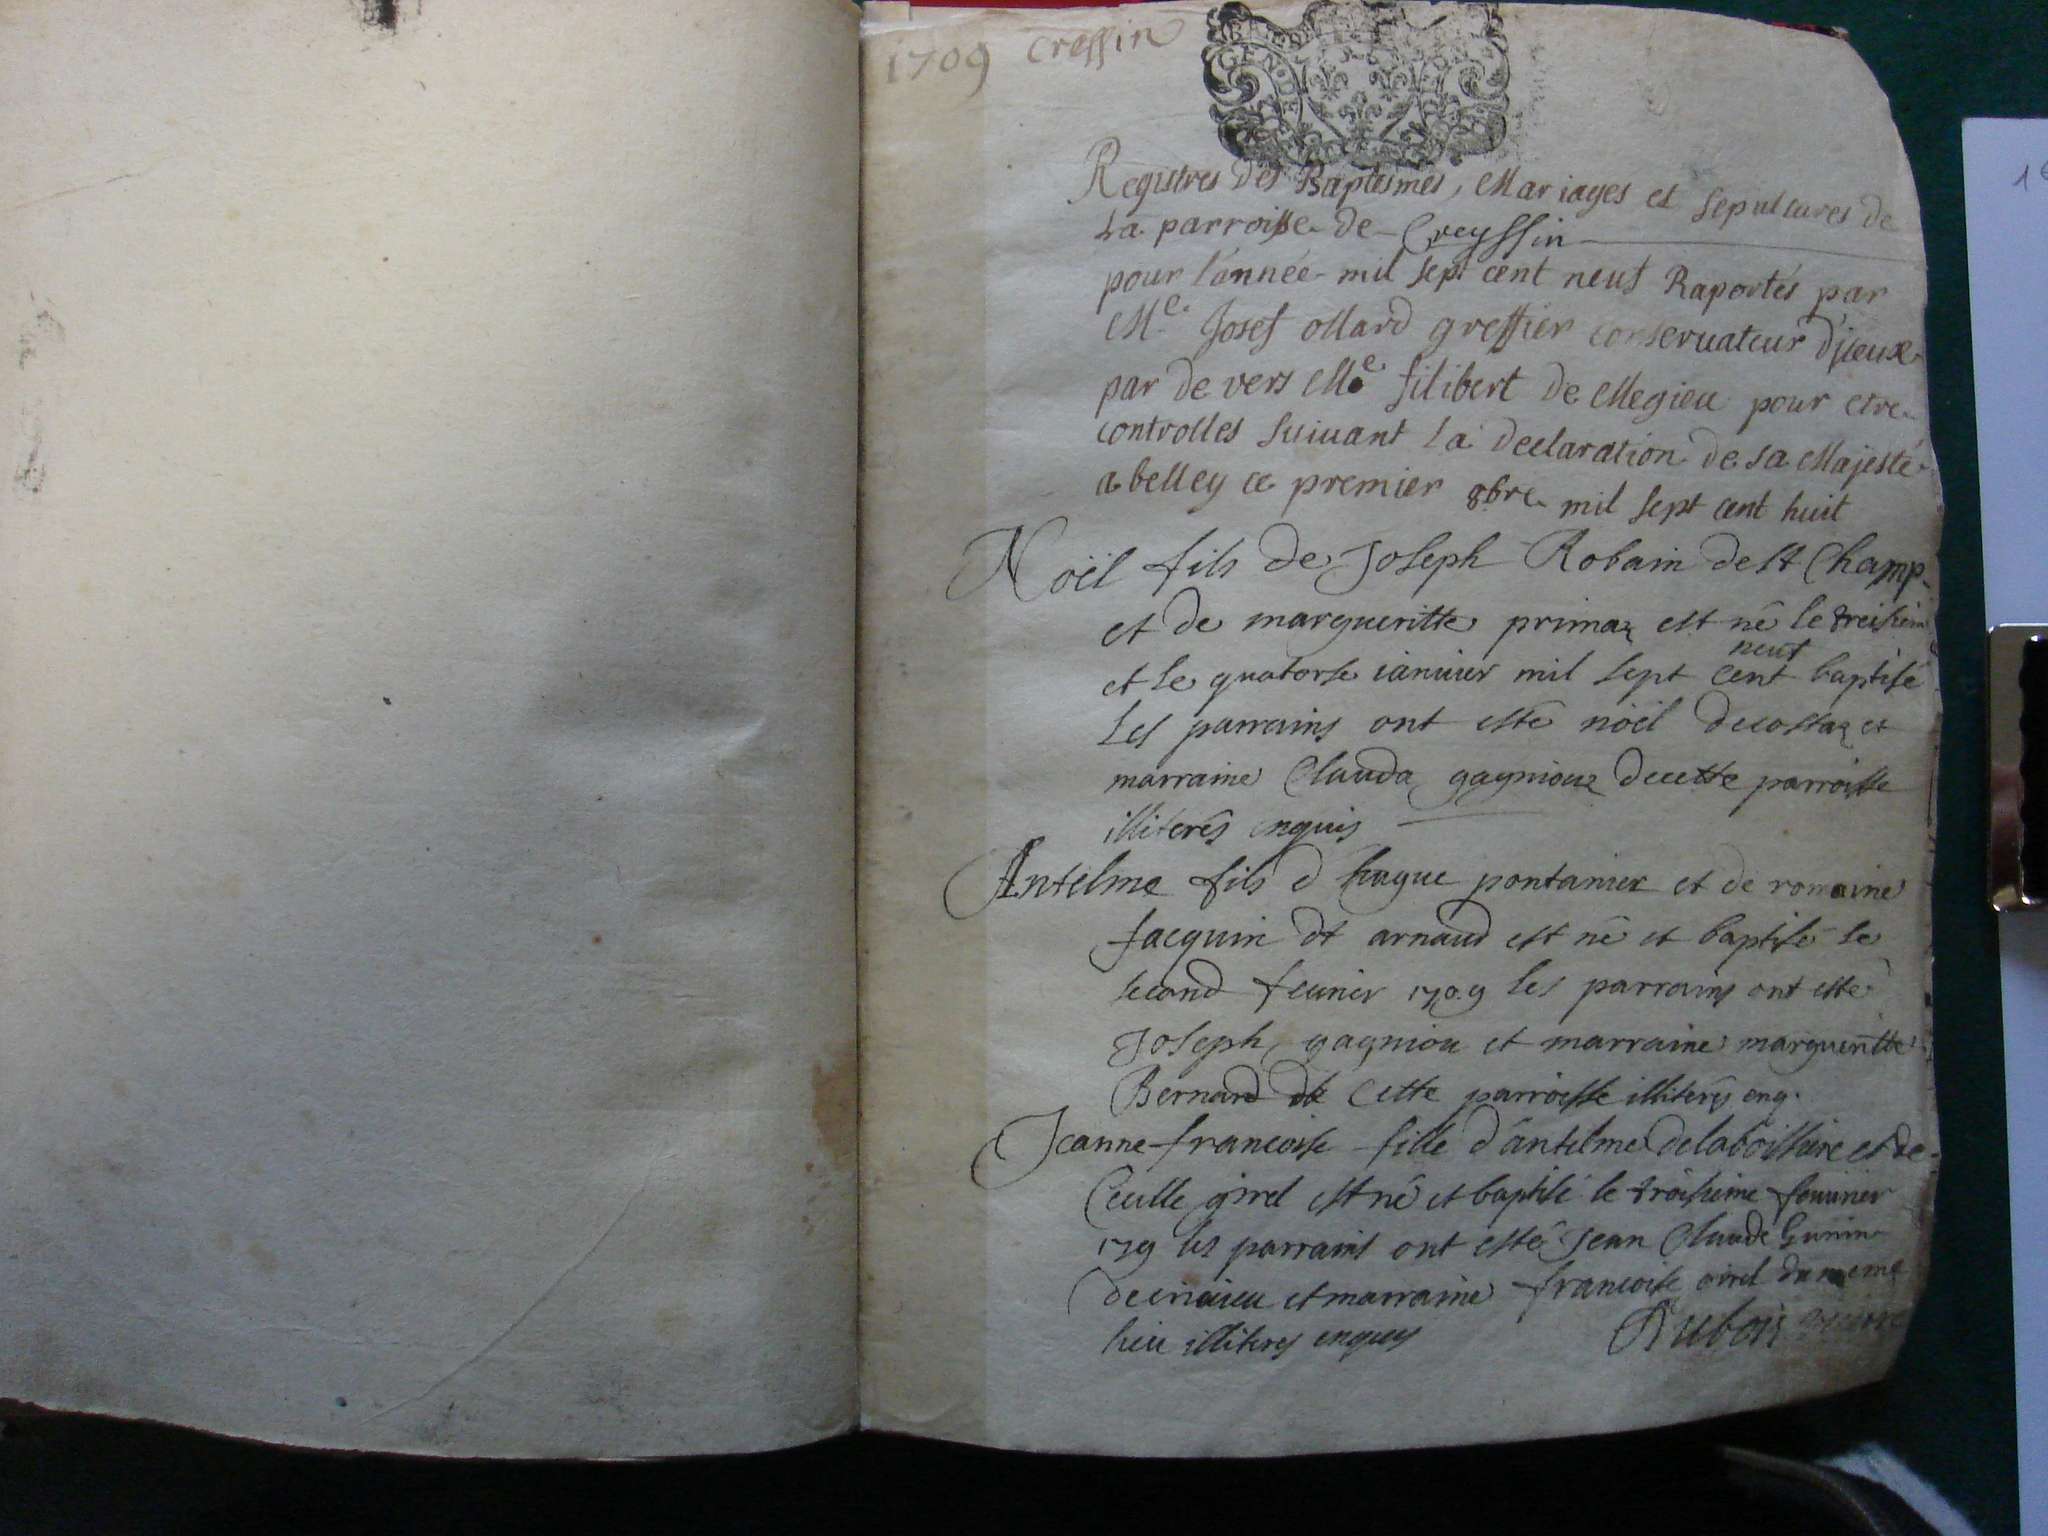 1709 Cressin
GEN DE
Registres Des Baptesmes, Mariages et sepultures de
La parroisse de Creyssin
pour l'année mil sept cent neuf Raportés par
Me. Josef ollard greffier conservateur d'jceux
par de vers Me filibert de Megieu pour etre
controlles suivant La declaration de sa Majesté
a belley ce premier 8bre mil sept cent huit
Noël fils de Joseph Robain de st Champ
et de margueritte primaz est né le treisiem
neuf
et le quatorse ianuier mil sept cent baptisé
Les parrains ont esté noël decostaz et
marraine Clauda gagniouz decette parroisse
illiterés enquis
Antelme fils d hugue pontanier et de romaine
Jacquin dt arnaud est né et baptisé le
second feurier 1709 les parrains ont esté
Joseph gagniou et marraine margueritte
Bernard de Cette parroisse illiterés enq.
Jeanne francoise fille d'antelme delaboissiere et de
Cecille girel est né et baptisé le troisieme feurier
1709 les parrains ont esté Jean Claude
et marraine francoise girel du meme
lieu illiteres enquis Dubois